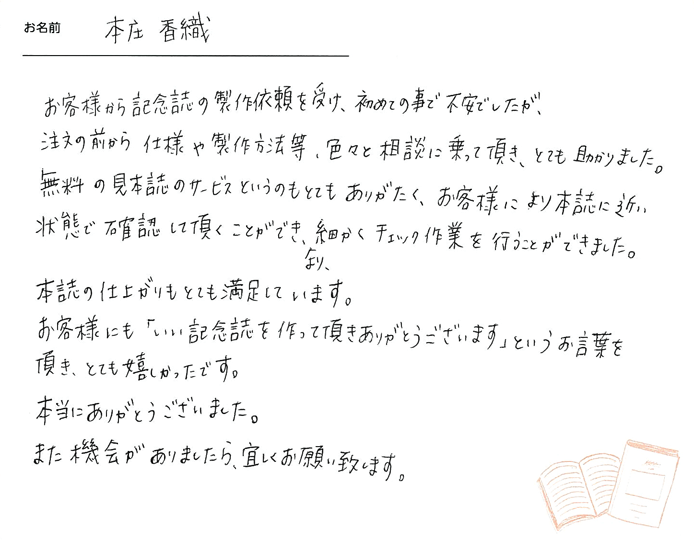 お名前 本庄 香織
お客様から記念誌の製作依頼を受け、初めての事で不安でしたが、
注文の前から仕様や製作方法等、色々と相談に乗って頂き、とても助かりました。
無料の見本誌のサービスというのもとてもありがたく、お客様により本誌に近い
状態で確認して頂くことができ、細かくチェック作業を行うことができました。
より、
本誌の仕上がりもとても満足しています。
お客様にも「いい記念誌を作って頂きありがとうございます」というお言葉を
頂き、とても嬉しかったです。
本当にありがとうございました。
また機会がありましたら、宜しくお願い致します。